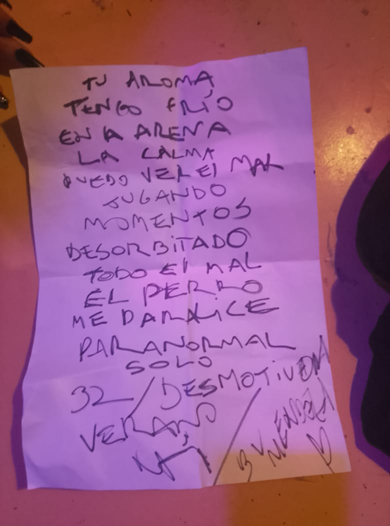 TU AROMA
TENGO FRÍO
EN LA ARENA
LA CALMA
PUEDO VER EL MAL
JUGANDO
MOMENTOS
DESORBITADO
TODO EL MAL
EL PERRO
ME PARALICE
PARANORMAL
SOLO
32 / DESMOTIVEM
VERANO